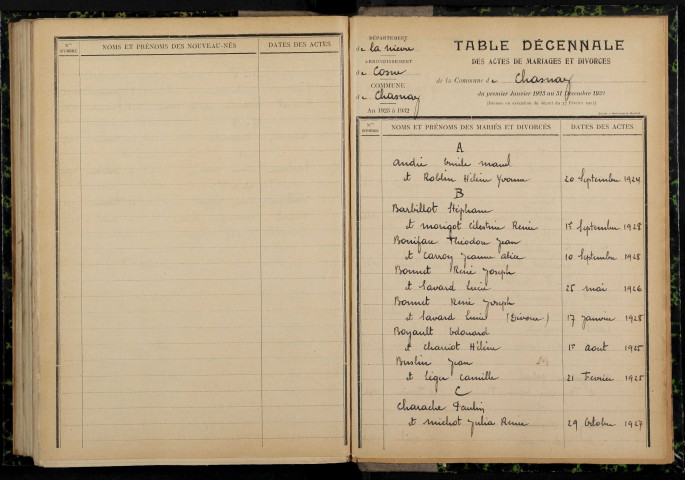 Nos D'ORDRE NOMS ET PRÉNOMS DES NOUVEAU-NÉS DATES DES ACTES
DÉPARTEMENT
de la Nièvre
ARRONDISSEMENT
de Cosne
COMMUNE
de Chasnay
An 1923 à 1932
TABLE DÉCENNALE
DES ACTES DE MARIAGES ET DIVORCES
de la Commune de Chasnay
du premier Janvier 1923 au 31 Décembre 1932
Nos D'ORDRE NOMS ET PRÉNOMS DES MARIÉS ET DIVORCÉS DATES DES ACTES
A
André Emile Marcel
et Roblin Hélène Yvonne 20 Septembre 1924
B
Barbillot Stéphane
et Morigot Célestine Renée 1er Septembre 1928
Boniface Théodore Jean
et Carroy Jeanne Alice 10 Septembre 1928
Bonnet René Joseph
et Savard Lucie 25 mai 1926
Bonnet René Joseph
et Savard Lucie (Divorce) 17 Janvier 1928
Boyault Edouard
et Charriot Hélène 1er Aout 1925
Buslin Jean
et Lèque Camille 21 Fevrier 1925
C
Charache Paulin
et Michot Julia Renée 29 Octobre 1927